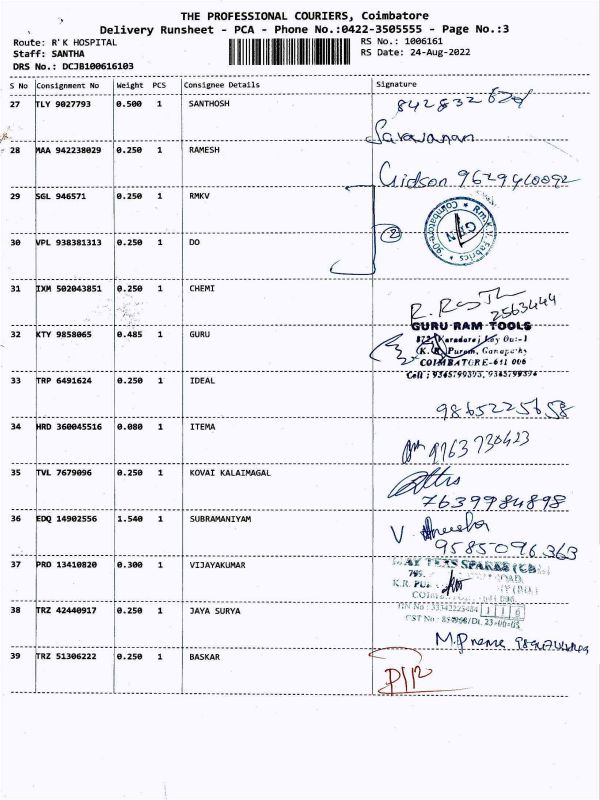 THE PROFESSIONAL COURIERS, Coimbatore
Delivery Runsheet - PCA - Phone No.:0422-3505555 - Page No.:3
Route: R'K HOSPITAL
RS No.: 1006161
Staff: SANTHA
RS Date: 24-Aug-2022
DRS No.: DCJB100616103
S No Consignment No Weight PCS Consignee Details Signature
27 TLY 9027793 0.500 1 SANTHOSH
Saravanan
28 MAA 942238029 0.250 1 RAMESH
Gidson 9629940092
29 SGL 946571 0.250 1 RMKV
R.m.K.V. Fabrics * Coimbatore-'90. *
2
30 VPL 938381313 0.250 1 DO
31 IXM 502043851 0.250 1 CHEMI
2563444
32 KTY 9858065 0.485 1 GURU
GURU RAM TOOLS
K. R. Puram, Ganapathy
COIMBATORE-641 006
Cell : 9345799393, 9345799394
33 TRP 6491624 0.250 1 IDEAL
9865225658
34 HRD 360045516 0.080 1 ITEMA
9763730423
35 TVL 7679096 0.250 1 KOVAI KALAIMAGAL
7639984898
36 EDQ 14902556 1.540 1 SUBRAMANIYAM
9585096363
37 PRO 13410820 0.300 1 VIJAYAKUMAR
38 TRZ 42440917 0.250 1 JAYA SURYA
39 TRZ 51306222 0.250 1 BASKAR